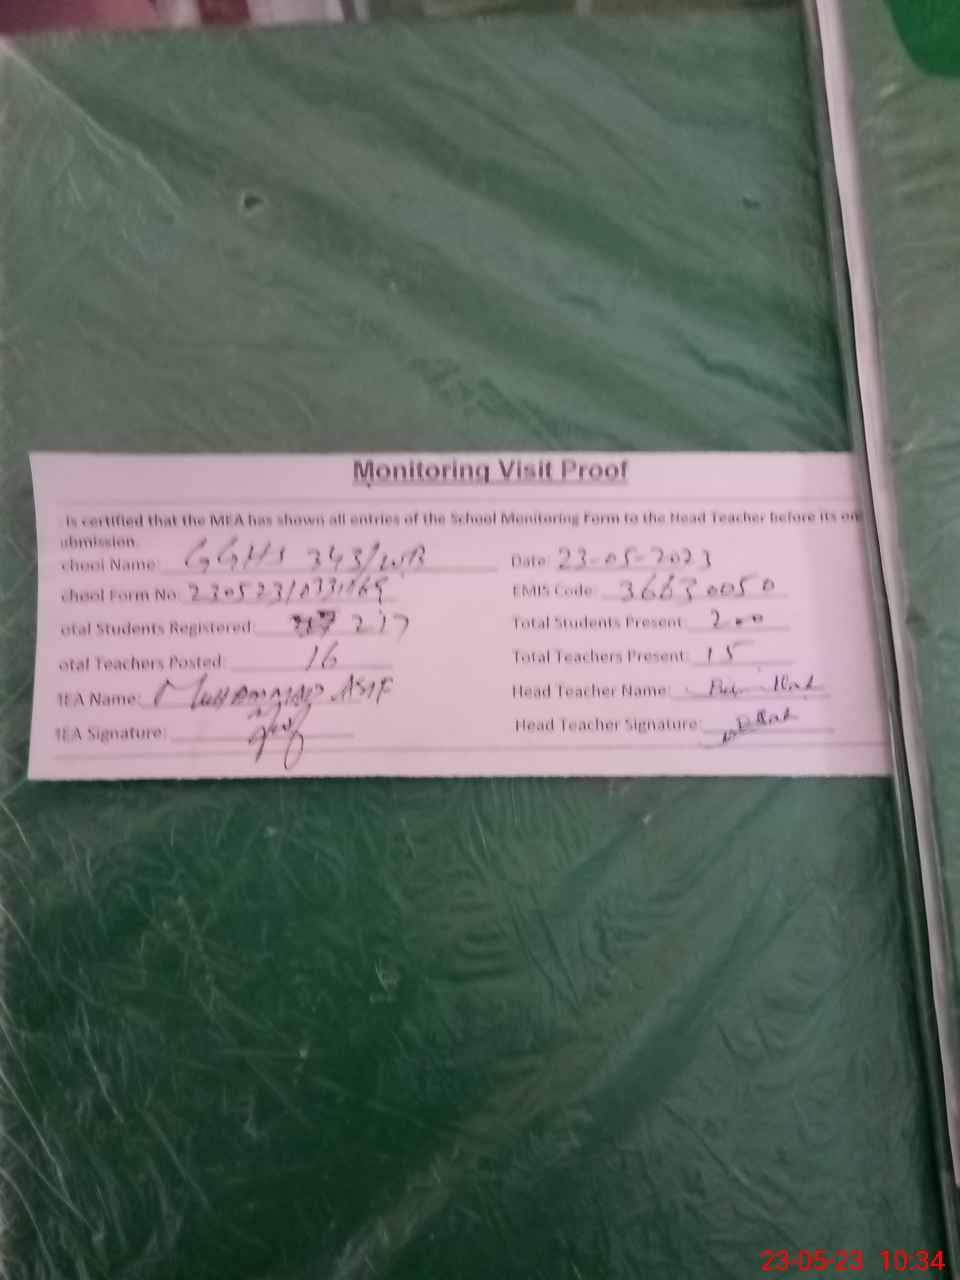 Monitoring Visit Proof
is certified that the MEA has shown all entries of the School Monitoring Form to the Head Teacher before its on
ubmission.
chool Name: GGHS 343/WB Date: 23-05-2023
chool Form No: EMIS Code: 36630050
otal Students Registered: 217 Total Students Present: 200
otal Teachers Posted: 16 Total Teachers Present: 15
IEA Name: MUHAMMAD ASIF Head Teacher Name:
IEA Signature: Head Teacher Signature:
23-05-23 10:34